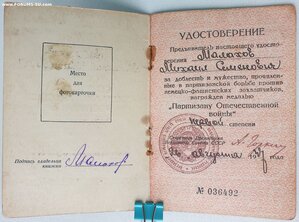 www.FORUMS-SU.com
Место
для
фотокарточки
Подпись владельца
книжки Малахов
УДОСТОВЕРЕНИЕ
Предъявитель настоящего удосто-
верения Малахов
Михаил Семенович
за доблесть и мужество, проявлен-
ные в партизанской борьбе против
немецко-фашистских захватчиков,
награжден медалью
"Партизану Отечественной
войны"
первой степени
августа
года
№ 036492